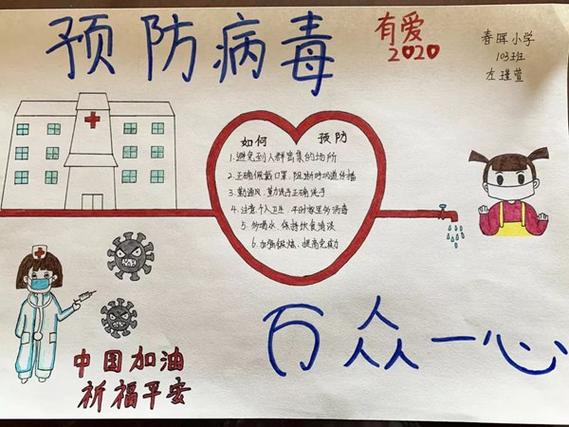 预防病毒
有爱
2020
春晖小学
103班
左瑾萱
如何 预防
1.避免到人群密集的场所
2.正确佩戴口罩,阻断呼吸道传播
3.勤通风,勤洗手正确洗手
4.注意个人卫生,平时家里勿病毒
5.多喝水,保持饮食清淡
6.加强锻炼、提高免疫力
中国加油
祈福平安
万众一心